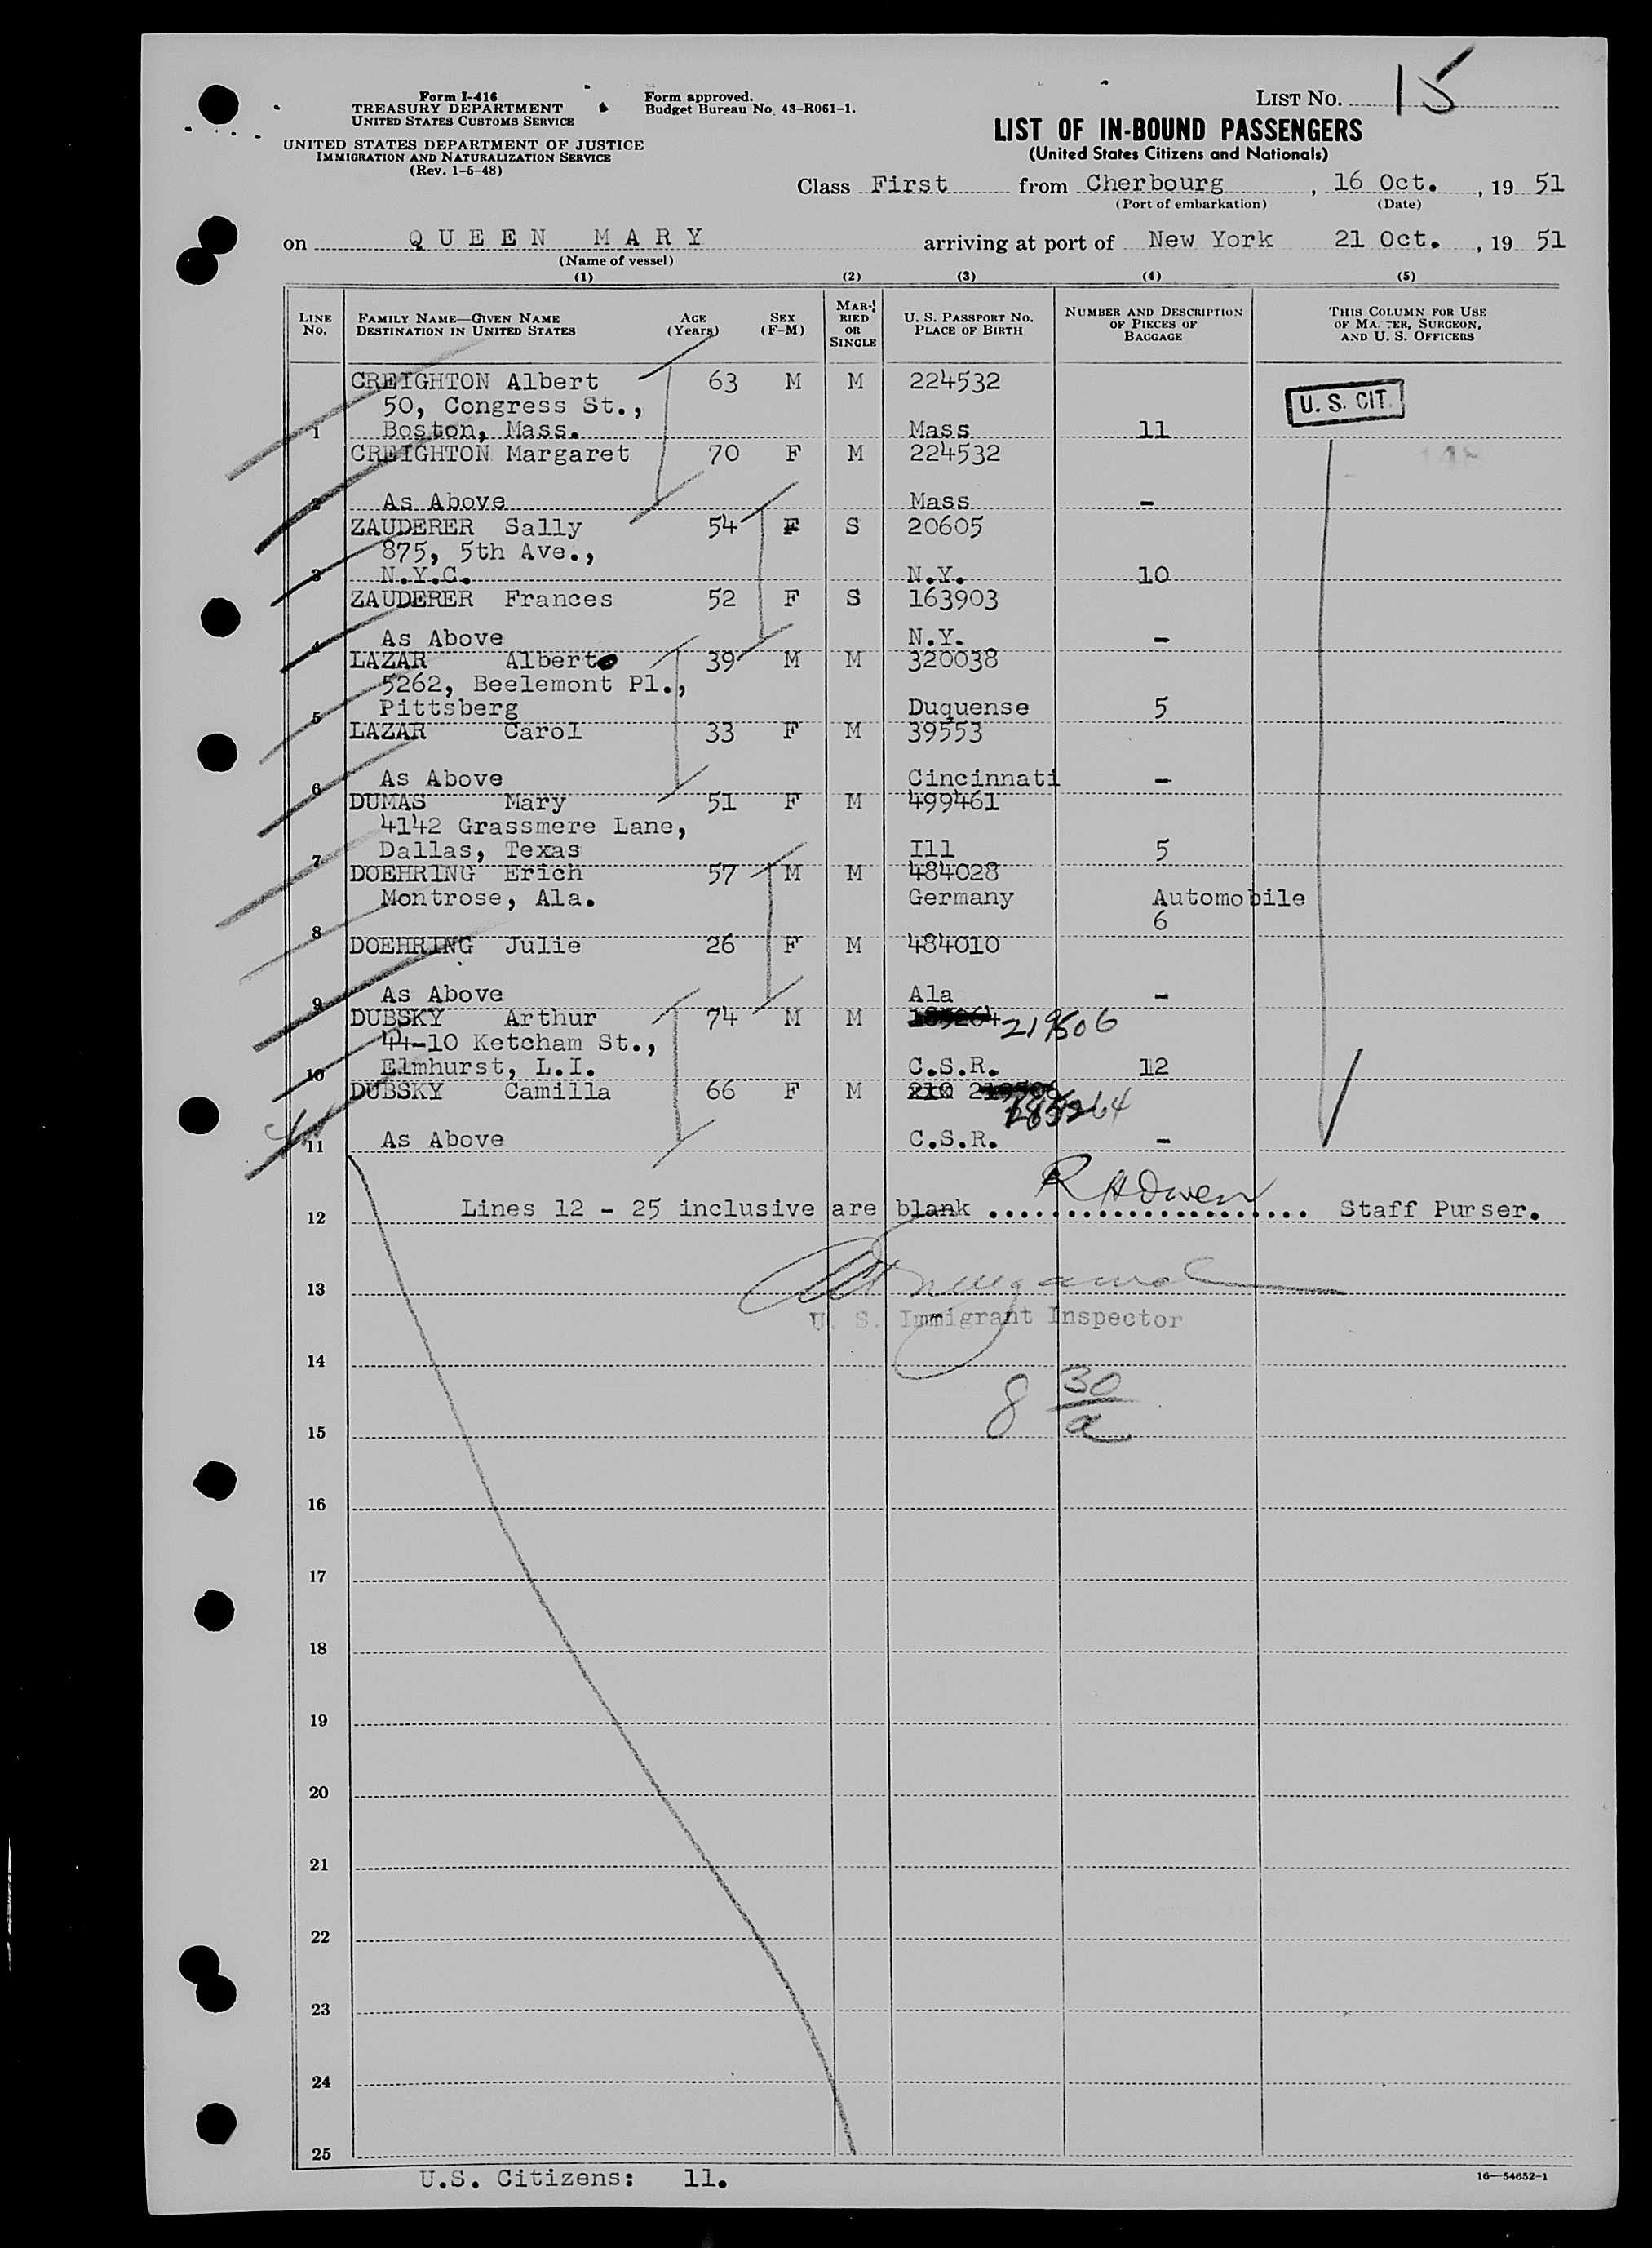 Form I-416
TREASURY DEPARTMENT
UNITED STATES CUSTOMS SERVICE
UNITED STATES DEPARTMENT OF JUSTICE
IMMIGRATION AND NATURALIZATION SERVICE
(Rev. 1-5-48)
Form approved.
Budget Bureau No. 43-R061-1.
LIST No. 15
LIST OF IN-BOUND PASSENGERS
(United States Citizens and Nationals)
Class First from Cherbourg, 16 Oct., 19 51
(Port of embarkation) (Date)
on QUEEN MARY arriving at port of New York 21 Oct., 19 51
(Name of vessel)
(1) (2) (3) (4) (5)
LINE No. FAMILY NAME—GIVEN NAME DESTINATION IN UNITED STATES AGE (Years) SEX (F-M) MARRIED OR SINGLE U. S. PASSPORT No. PLACE OF BIRTH NUMBER AND DESCRIPTION OF PIECES OF BAGGAGE THIS COLUMN FOR USE OF MASTER, SURGEON, AND U. S. OFFICERS
CREIGHTON Albert 63 M M 224532
50, Congress St., U. S. CIT.
1 Boston, Mass. Mass 11
CREIGHTON Margaret 70 F M 224532 148
2 As Above Mass -
ZAUDERER Sally 54 F S 20605
875, 5th Ave.,
3 N.Y.C. N.Y. 10
ZAUDERER Frances 52 F S 163903
4 As Above N.Y. -
LAZAR Albert 39 M M 320038
5262, Beelemont Pl.,
5 Pittsberg Duquense 5
LAZAR Carol 33 F M 39553
6 As Above Cincinnati -
DUMAS Mary 51 F M 499461
4142 Grassmere Lane,
7 Dallas, Texas Ill 5
DOEHRING Erich 57 M M 484028
Montrose, Ala. Germany Automobile
8 6
DOEHRING Julie 26 F M 484010
9 As Above Ala -
DUBSKY Arthur 74 M M 219506
44-10 Ketcham St.,
10 Elmhurst, L.I. C.S.R. 12
DUBSKY Camilla 66 F M 210 185264
11 As Above C.S.R. -
12 Lines 12 - 25 inclusive are blank RHOwen Staff Purser.
13
U. S. Immigrant Inspector
14
8 30/a
15
16
17
18
19
20
21
22
23
24
25
U.S. Citizens: 11.
16—54652-1